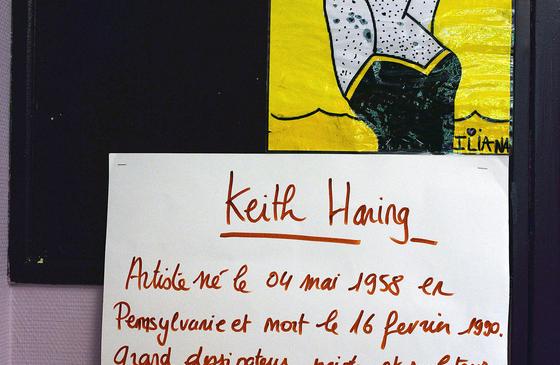 ILIANA
Keith Haring
Artiste né le 04 mai 1958 en
Pennsylvanie et mort le 16 fevrier 1990.
Grand dessinateur, peintre et sculpteur